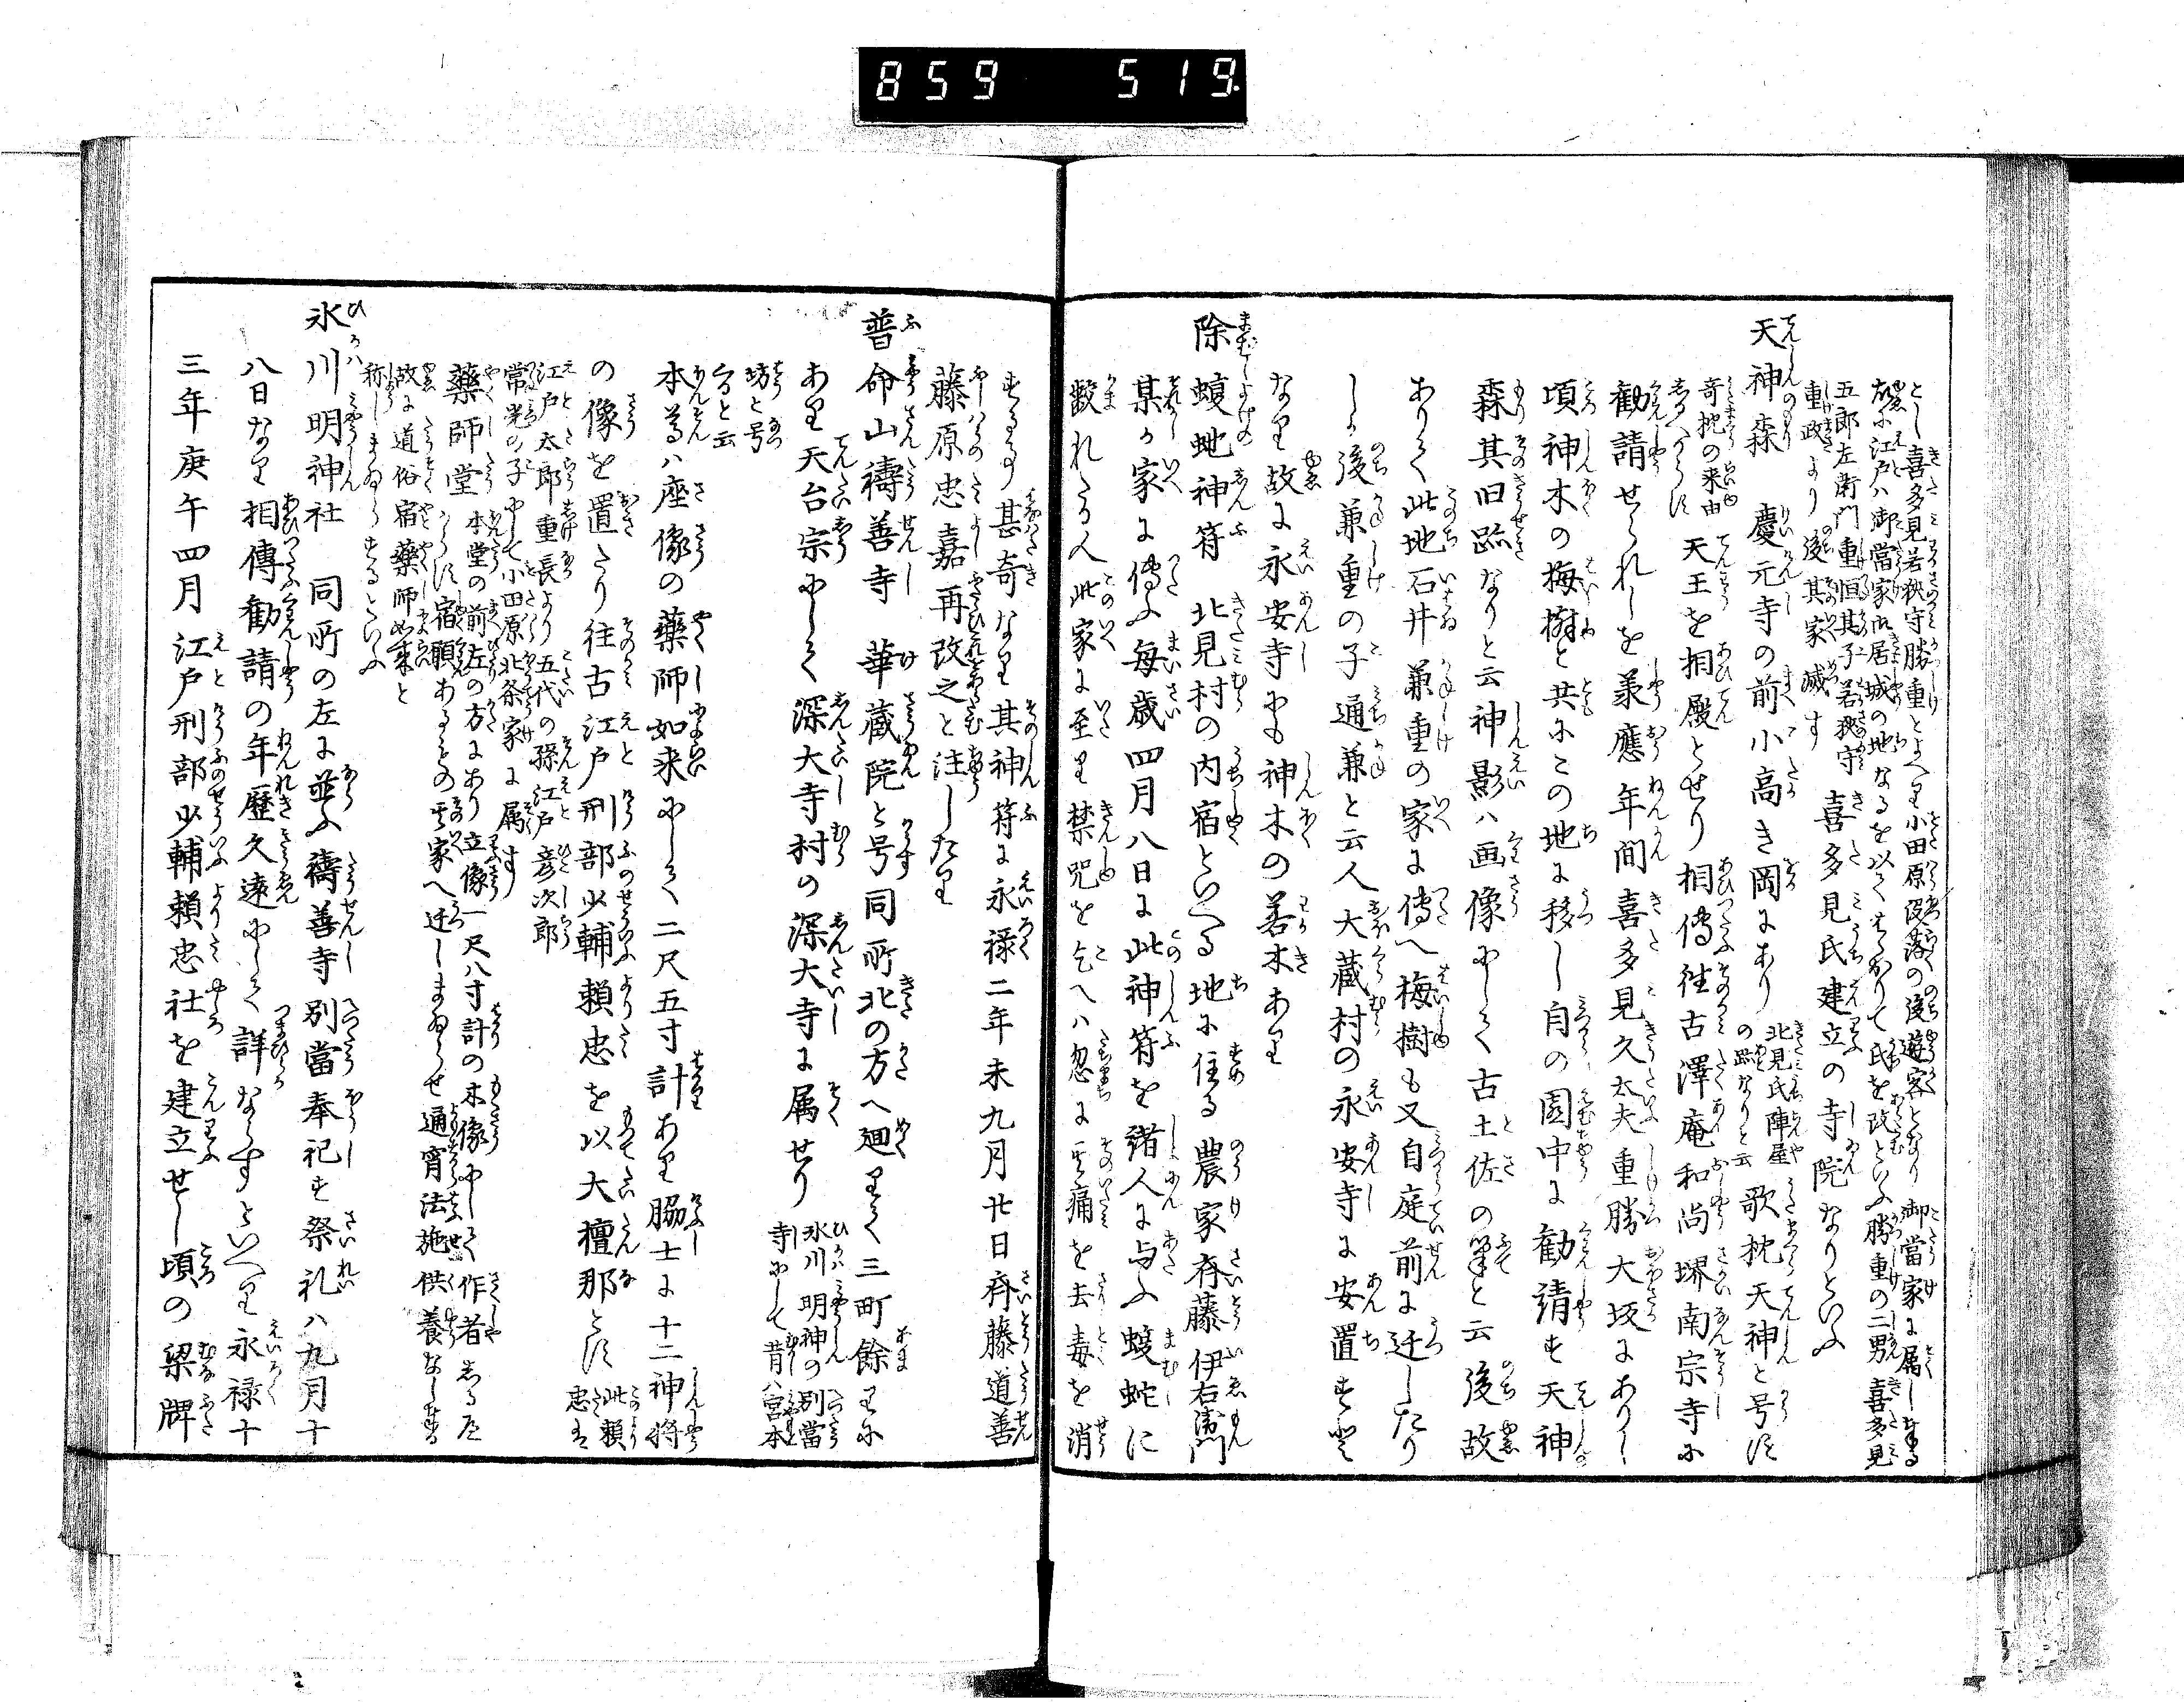 859 519.
とし喜多見若狭守勝重とよへり小田原没落の後遊客となり御當家に属し奉る
故に江戸ハ御當家御居城の地なるを以てはゞかりて氏を改むといふ勝重の二男喜多見
五郎左衛門重恒其子若狭守
重政より後其家滅す
喜多見氏建立の寺院なりといふ
天神森 慶元寺の前小高き岡にあり
北見氏陣屋
の跡なりと云
歌枕天神と号す
奇枕の来由
しるへからす
天王を相殿とせり相傳往古澤庵和尚堺南宗寺に
勧請せられしを兼應年間喜多見久太夫重勝大坂にありし
頃神木の梅樹と共にこの地に移し自の園中に勧請す天神
森其旧跡なりと云神影ハ画像にして古土佐の筆と云後故
ありて此地石井兼重の家に傳へ梅樹も又自庭前に迁したり
しか後兼重の子通兼と云人大蔵村の永安寺に安置すと
なり故に永安寺にも神木の若木あり
除蝮虵神符 北見村の内宿といへる地に住る農家斉藤伊右衛門
某か家に傳ふ毎歳四月八日に此神符を諸人に与ふ蝮蛇に
齩れたる人此家に至り禁咒を乞へハ忽に其痛を去毒を消
するの甚奇なり其神符に永禄二年未九月廿日斉藤道善
藤原忠嘉再改之と注したり
普命山禱善寺 華蔵院と号同所北の方へ廻りて三町餘りに
あり天台宗にして深大寺村の深大寺に属せり
氷川明神の別當
寺にして昔ハ宮本
坊と号
ると云
本尊ハ座像の藥師如来にして二尺五寸計あり脇士に十二神将
の像を置たり往古江戸刑部少輔頼忠を以大檀那とす
此頼
忠は
江戸太郎重長より五代の孫江戸彦次郎
常光の子にして小田原北条家に属す
藥師堂
本堂の前左の方にあり立像一尺八寸計の木像にして作者しる左
からす宿願あるもの其家へ迁しまゐらせ通宵法施供養なし奉る
故に道俗宿藥師如来と
称しまゐらするといふ
氷川明神社 同所の左に並ふ禱善寺別當奉祀す祭礼ハ九月十
八日なり相傳勧請の年歴久遠にして詳ならすといへり永禄十
三年庚午四月江戸刑部少輔頼忠社を建立せし頃の梁牌